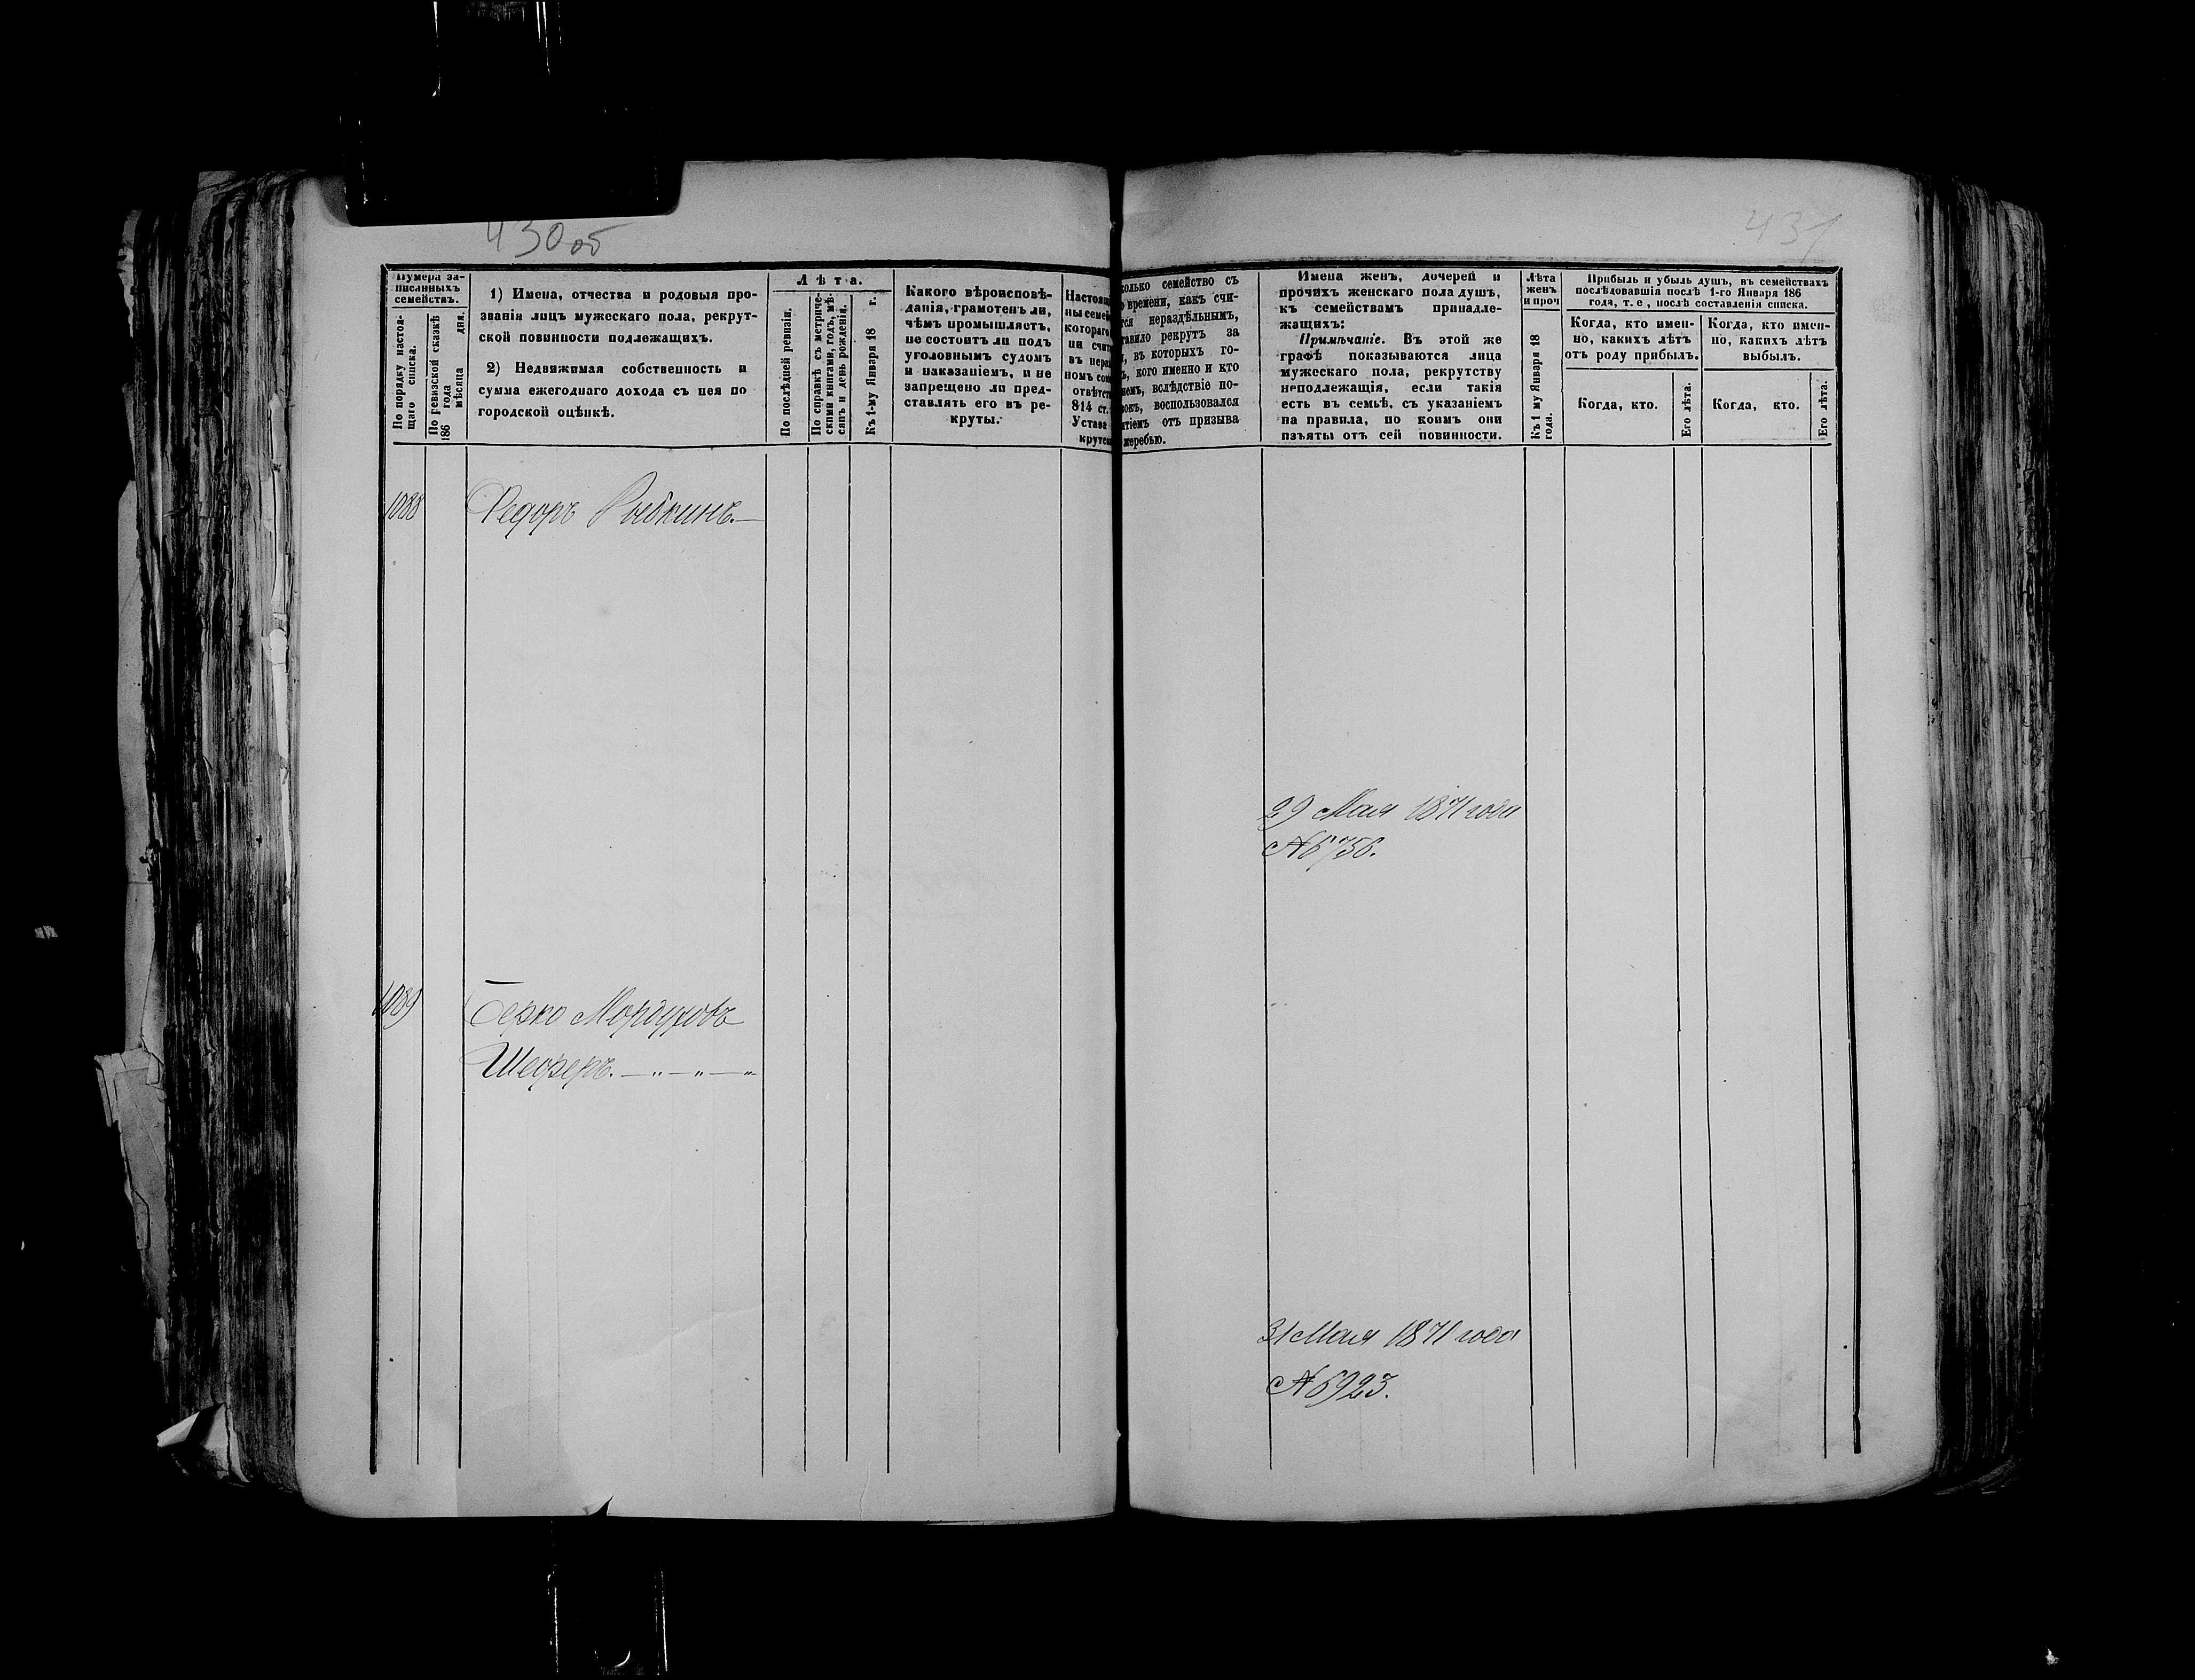 430об
431
Нумера за-
писанныхъ
семействъ.
По порядку настоя-
щаго списка.
По ревизской сказкѣ
186 года
мѣсяца дня.
1) Имена, отчества и родовыя про-
званія лицъ мужескаго пола, рекрут-
ской повинности подлежащихъ.
2) Недвижимая собственность и
сумма ежегоднаго дохода съ нея по
городской оцѣнкѣ.
Лѣта.
По послѣдней ревизіи.
По справкѣ съ метриче-
скими книгами, годъ, мѣ-
сяцъ и день рожденія.
Къ 1-му Января 18 г.
Какого вѣроисповѣ-
данія, грамотенъ ли,
чѣмъ промышляетъ,
не состоитъ ли подъ
уголовнымъ судомъ
и наказаніемъ, и не
запрещено ли пред-
ставлять его въ ре-
круты.
Настоящ
ны семей
котораго
ни счит
въ нераз
номъ сос
отвѣтст
814 ст.
Устава
крутск
колько семейство съ
о времени, какъ счи-
тся нераздѣльнымъ,
тавило рекрутъ за
, въ которыхъ го-
ъ, кого именно и кто
немъ, вслѣдствіе по-
вокъ, воспользовался
ятіемъ отъ призыва
жеребью.
Имена женъ, дочерей и
прочихъ женскаго пола душъ,
къ семействамъ принадле-
жащихъ:
Примѣчаніе. Въ этой же
графѣ показываются лица
мужескаго пола, рекрутству
неподлежащія, если такія
есть въ семьѣ, съ указаніемъ
на правила, по коимъ они
изъяты отъ сей повинности.
Лѣта
женъ
и проч
Къ 1 му Января 18
года.
Прибыль и убыль душъ, въ семействахъ
послѣдовавшія послѣ 1-го Января 186
года, т. е, послѣ составленія списка.
Когда, кто имен-
но, какихъ лѣтъ
отъ роду прибылъ.
Когда, кто.
Его лѣта.
Когда, кто имен-
но, какихъ лѣтъ
выбылъ.
Когда, кто.
Его лѣта.
1088 Федоръ Рыбкинъ.—
29 Мая 1871 года
№ 6756.
1089 Берко Мордуховъ
Шеферъ. — „ — „ — „
31 Мая 1871 года
№ 6923.